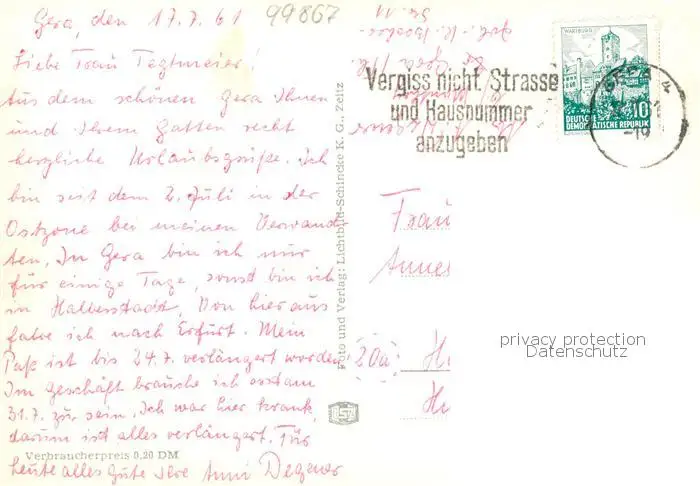 Gera, den 17.7.61
99867
Liebe Frau Tegtmeier!
Aus dem schönen Gera Ihnen
und Ihrem Gatten recht
herzliche Urlaubsgrüße. Ich
bin seit dem 2. Juli in der
Ostzone bei meinen Verwand-
ten. In Gera bin ich nur
für einige Tage, sonst bin ich
in Halberstadt. Von hier aus
fahre ich nach Erfurt. Mein
Paß ist bis 24.7. verlängert worden
Im Geschäft brauche ich erst am
31.7. zu sein. Ich war hier krank,
darum ist alles verlängert. Für
heute alles Gute Ihre Anni Degener
Verbraucherpreis 0,20 DM
Foto und Verlag: Lichtbild-Schincke K. G., Zeitz
Vergiss nicht Strasse
und Hausnummer
anzugeben
WARTBURG
10
DEUTSCHE
DEMOKRATISCHE REPUBLIK
GERA
-19
Frau
Annes
20a
H
privacy protection
Datenschutz